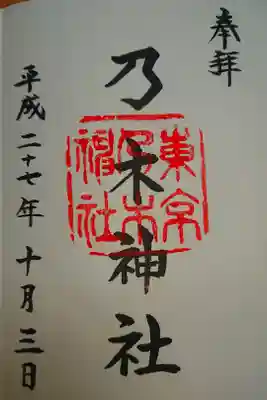 奉拝
乃木神社
東京
乃木
神社
平成二十七年十月三日